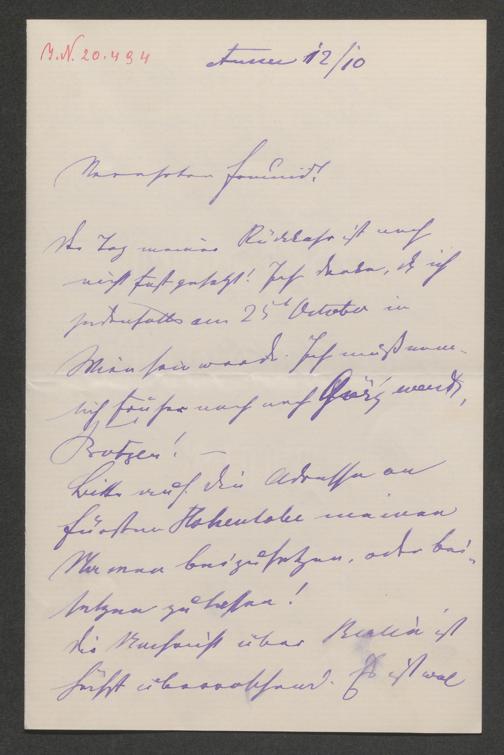 I.N. 20.494
Aussee 12/10
Verehrter Freund!
Der Tag meiner Rückkehr ist noch
nicht festgesetzt! Ich denke, daß ich
jedenfalls am 25t October in
Wien sein werde. Ich muß näm-
lich früher noch nach Görz, event.
Botzen! —
Bitte auf die Adresse an
Fürsten Hohenlohe meinen
Namen beizusetzen, oder bei-
setzen zu lassen!
Die Nachricht über Berlin ist
höchst überraschend. Es ist wol